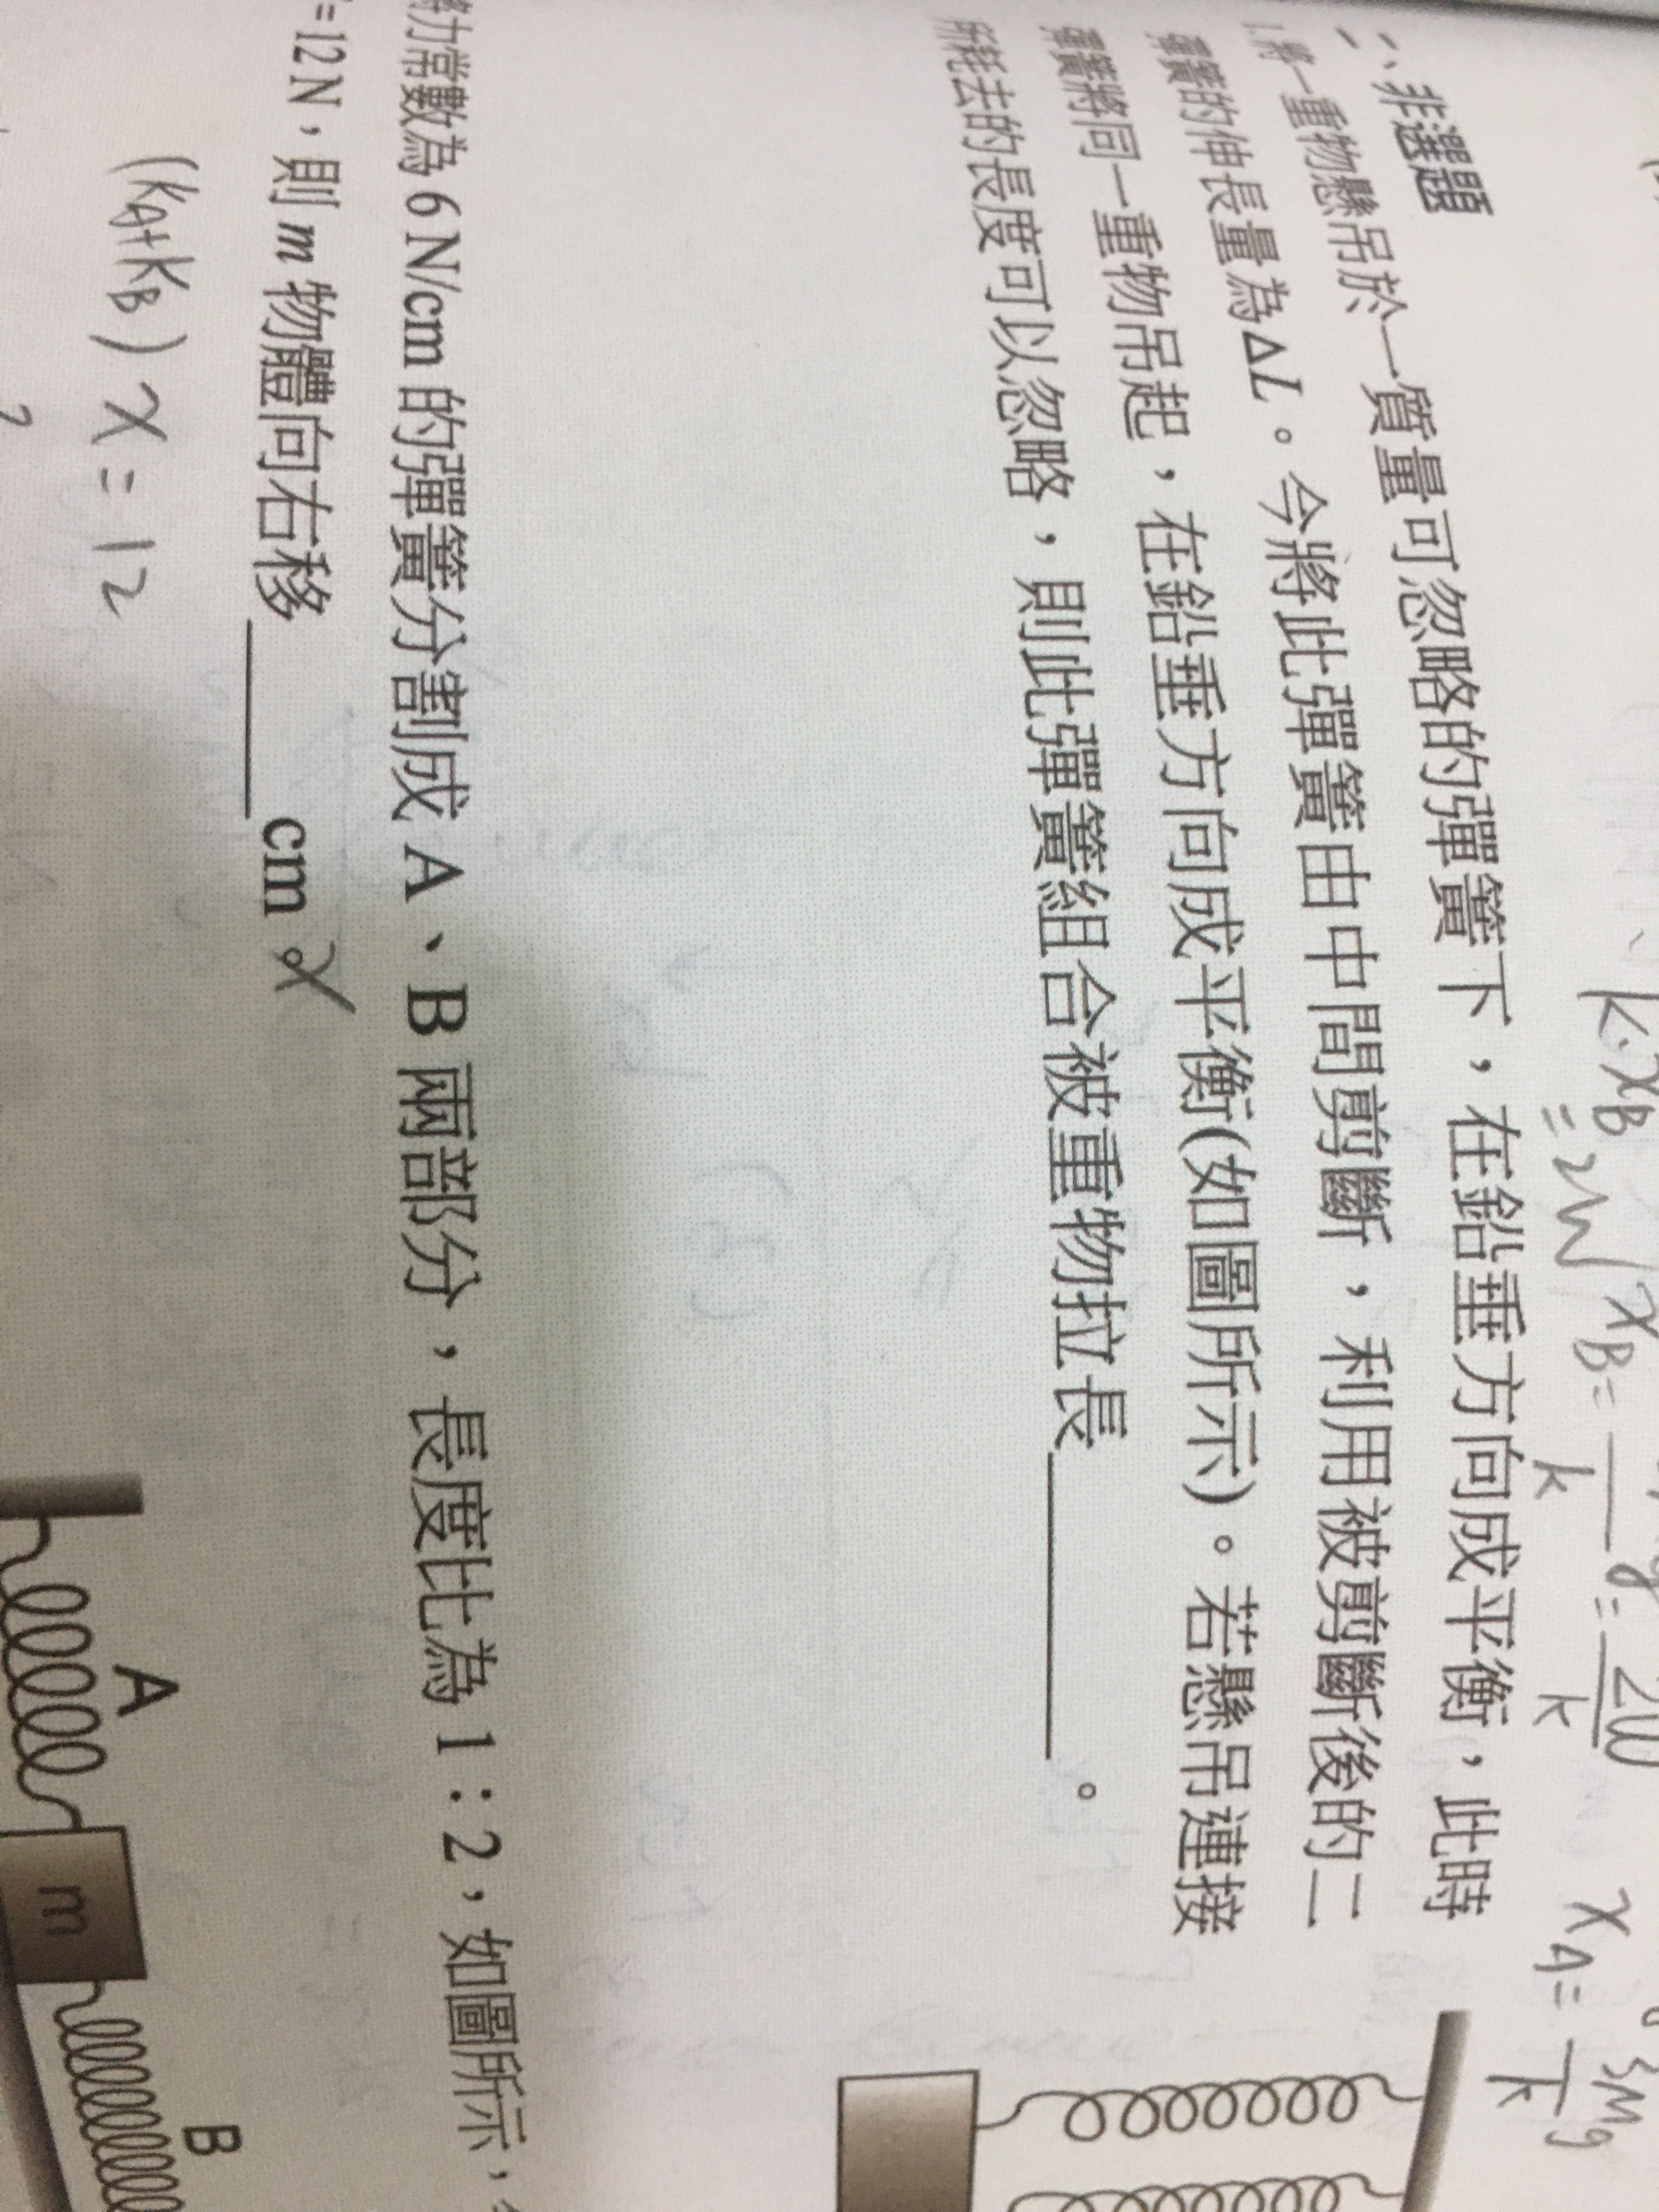 k·x_B = 2W / x_B = ___ = 2W
k k
x_A = 3mg
k
二、非選題
1.將一重物懸吊於一質量可忽略的彈簧下，在鉛垂方向成平衡，此時
彈簧的伸長量為ΔL。今將此彈簧由中間剪斷，利用被剪斷後的二
彈簧將同一重物吊起，在鉛垂方向成平衡(如圖所示)。若懸吊連接
所耗去的長度可以忽略，則此彈簧組合被重物拉長______。
力常數為 6 N/cm 的彈簧分割成 A、B 兩部分，長度比為 1：2，如圖所示，
=12 N，則 m 物體向右移______cm。
(k_A+k_B) x = 12
A
m
B